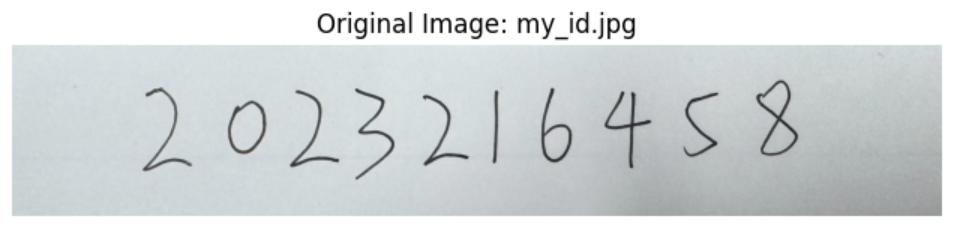 Original Image: my_id.jpg
2023216458